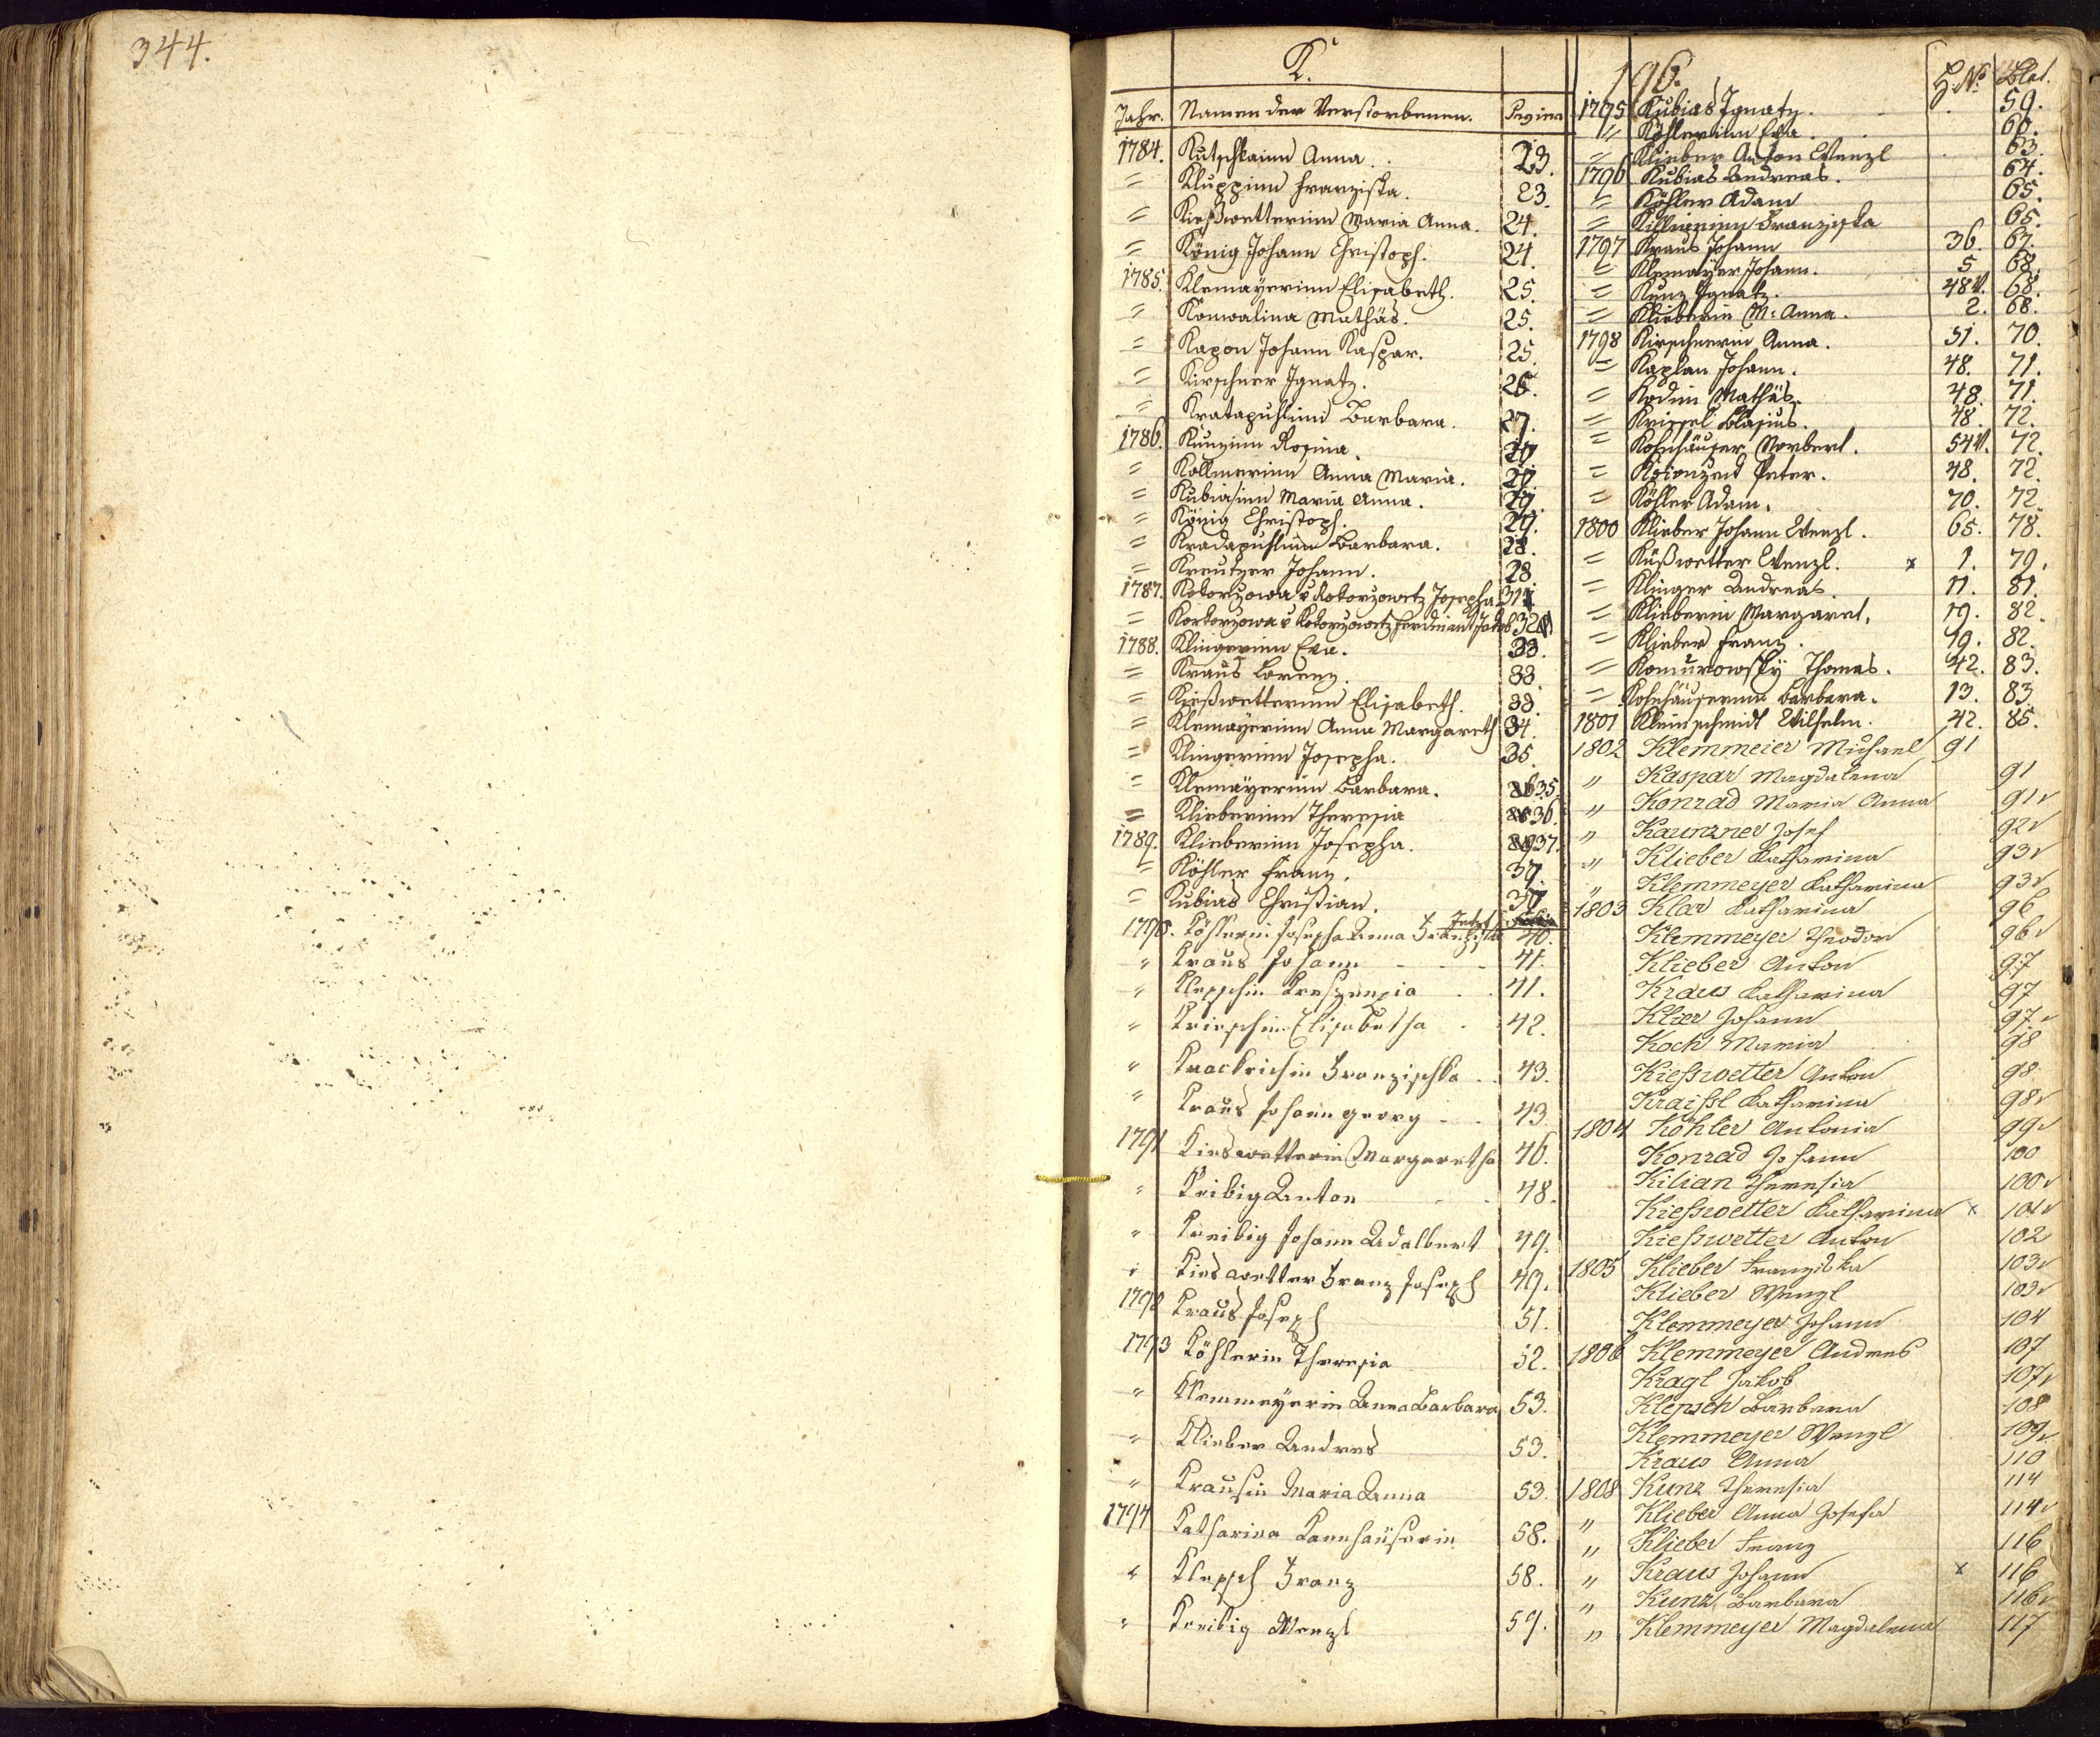 344.
K.
Jahr. Namen der Verstorbenen.
1784. Kutschkainn Anna. 23.
= Kluppinn Franziska. 23.
= Kießwetterinn Maria Anna. 24.
= König Johann Christoph. 24.
1785. Klemayerinn Elisabeth. 25.
= Konwalina Mathäs. 25.
= Kapon Johann Kaspar. 25.
= Kirschner Ignatz. 26.
= Kratapuhlinn Barbara. 27.
1786. Kunzinn Rosina. 27
= Kollmerinn Anna Maria. 27.
= Kubiasinn Maria Anna. 27.
= König Christoph. 27.
= Kradapuhlinn Barbara. 28.
= Kreutzer Johann. 28.
1787. Kotorzowa v Kotorzowetz Josepha 31
= Kortorzowa v Kotorzowetz Ferdinant Jakob 32
1788. Klingerinn Eva. 33.
= Kraus Lorenz. 33
= Kießwetterinn Elisabeth. 33.
= Klemayerinn Anna Margareth 34.
= Klingerinn Josepha. 35.
= Klemayerinn Barbara. 35.
= Klieberinn Theresia 36.
1789. Klieberinn Josepha. 37.
= Köhler Franz. 37.
= Kubias Christian. 37.
1790. Köhlerin Josepha Anna Franziska 40.
" Kraus Johann 41.
" Klepschin Kreszenzia 41.
" Krieschin Elisabetha 42.
" Krocklrichin Franzischka 43.
" Kraus Johann georg 43.
1791 Kieswetterin Margaretha 46.
" Kribig Anton 48.
" Kreibig Johann Adalbert 49.
" Kieswetter Franz Joseph 49.
1792 Kraus Joseph 51.
1793 Köhlerin Theresia 52.
" Klemmeyerin Anna Barbara 53.
" Klieber Andres 53.
" Krausin Maria Anna 53.
1794 Katharina Kornhäuserin 58.
" Klepsch Franz 58.
" Kreibig Wenzl 59.
196.
H. No. Blat.
1795 Kubias Ignatz. 59.
" Köhlerinn Eva. 60.
= Klieber Anton Wenzl 63.
1796 Kubias Andreas. 64.
= Köhler Adam 65.
= Franziska 65.
1797 Kraus Johann 36. 67.
= Klemayer Johann. 5 68.
= Kunz Ignatz. 48 68.
= Klieberin M: Anna. 2. 68.
1798 Kirschnerin Anna. 51. 70.
= Kaplan Johann. 48. 71.
= Kodim Mathäs. 48. 71.
= Krissel Blasius. 48. 72.
= Kohnhäuser Norbert. 54 72.
= Peter. 48. 72.
= Köhler Adam. 70. 72.
1800 Klieber Johann Wenzl. 65. 78.
= Küßwetter Wenzl. x 1. 79.
= Klinger Andreas. 11. 81.
= Klieberin Margaret. 19. 82.
= Klieber Franz. 19. 82.
= Komurowsky Thomas. 42. 83.
= Kohnhäuserinn Barbara. 13. 83
1801 Kleinschmidt Wilhelm. 42. 85.
1802 Klemmeier Michael 91
" Kaspar Magdalena 91
" Konrad Maria Anna 91v
" Kaunzner Josef 92v
" Klieber Katharina 93v
" Klemmeyer Katharina 93v
1803 Klar Katharina 96
Klemmeyer Theodor 96v
Klieber Anton 97
Kraus Katharina 97
Klier Johann 97v
Koch Maria 98
Kießwetter Anton 98
Kraißl Katharina 98v
1804 Köhler Antonia 99v
Konrad Johann 100
Kilian Theresia 100v
Kießwetter Katharina x 101v
Kießwetter Anton 102
1805 Klieber Franziska 103v
Klieber Wenzl 103v
Klemmeyer Johann 104
1806 Klemmeyer Andres 107
Kragl Jakob 107v
Klepsch Barbara 108
Klemmeyer Wenzl 109v
Kraus Anna 110
1808 Kunz Theresia 114
" Klieber Anna Josefa 114v
" Klieber Franz 116
" Kraus Johann x 116
" Kunz Barbara 116v
" Klemmeyer Magdalena 117